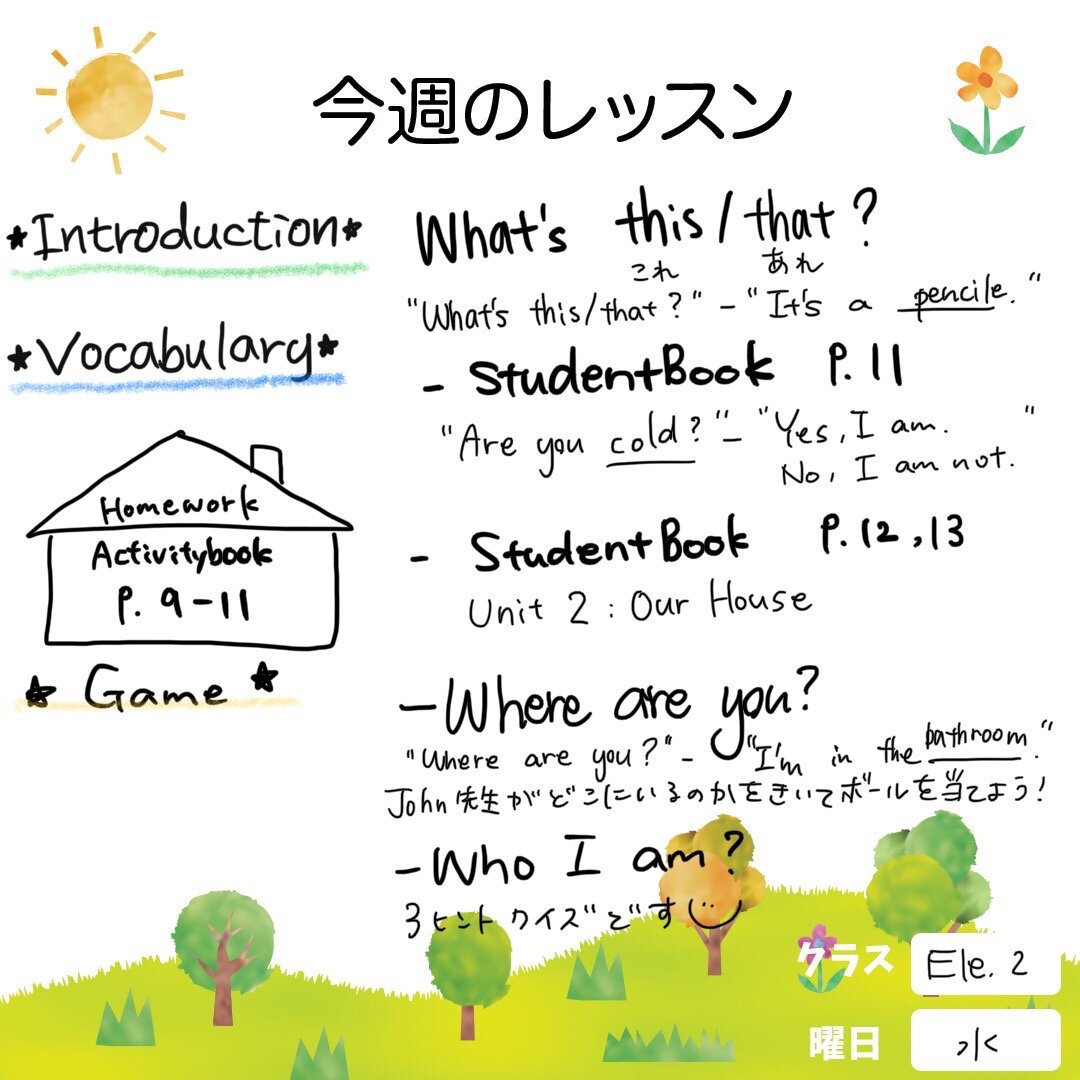 今週のレッスン
★Introduction★
What's this/that?
これ あれ
"What's this/that?" - "It's a pencile."
★Vocabulary★
- StudentBook P.11
"Are you cold?" - "Yes, I am. "
No, I am not.
Homework
Activitybook
P. 9-11
- StudentBook P.12,13
Unit 2 : Our House
★ Game ★
- Where are you?
"Where are you?" - "I'm in the bathroom."
John先生がどこにいるのかをきいてボールを当てよう!
- Who I am?
3ヒントクイズです
クラス Ele. 2
曜日 水